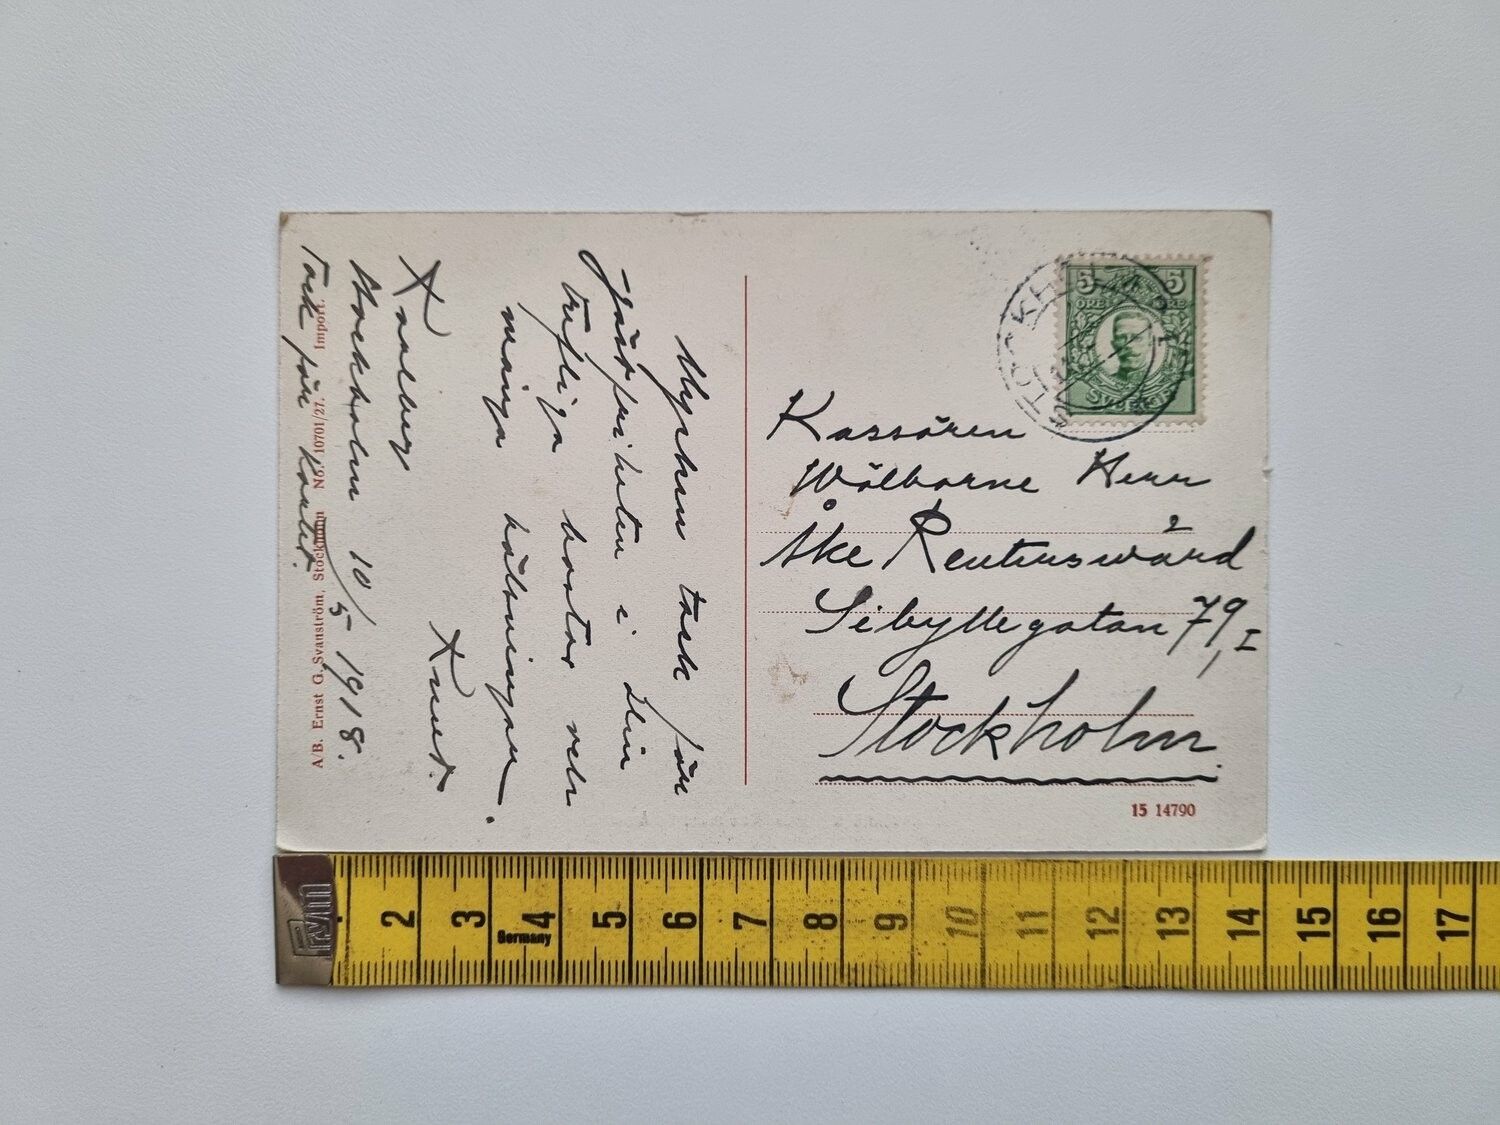 Mycken tack för
gästfriheten i Ditt
trefliga bostad och
många hälsningar.
Knut.
Stockholm 10/5 1918.
Tack för kortet.
A/B. Ernst G. Svanström, Stockholm No. 10701/27. Import.
5 5
ÖRE ÖRE
SVERIGE
Kassören
Wälborne Herr
Åke Reuterswärd
Sibyllegatan 79, I
Stockholm.
15 14790
Prym
2 3 4 5 6 7 8 9 10 11 12 13 14 15 16 17
Germany